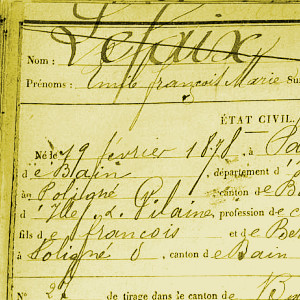 Lefaix
Nom :
Prénoms : Emile François Marie Su
ÉTAT CIVIL.
Né le 19 février 1878, à
d e Bain, département d
à Poligné, canton de B
d' Ille & Vilaine, profession de c
fils de François et de
à Poligné, canton de Bain
N° 2 de tirage dans le canton de Ba